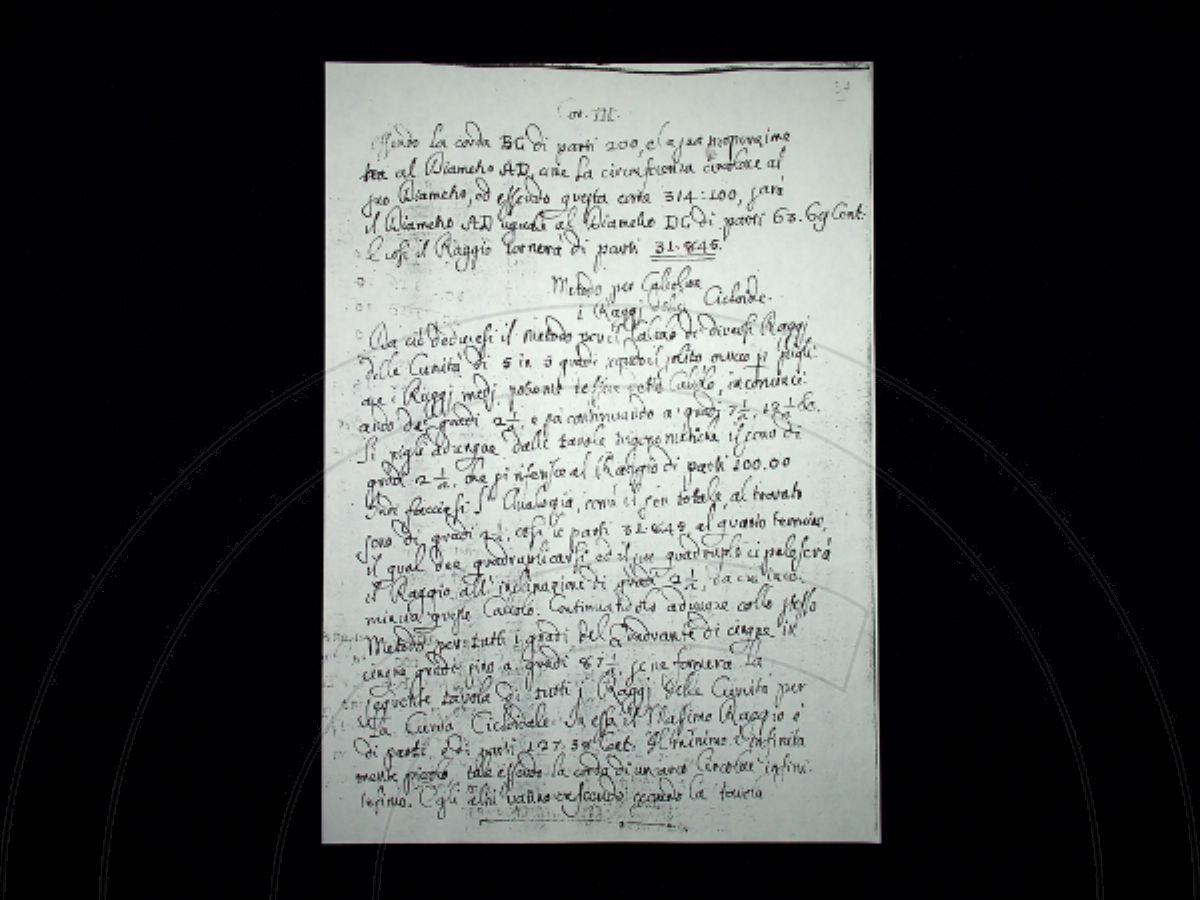 37
Con. III.
Essendo la corda BC di parti 200, e la sua
al Diametro AD, come la circonferenza circolare al
suo Diametro, ed essendo questa come 314:100, sarà
il Diametro AD uguale al Diametro DC di parti 63.69 Cent.
E così il Raggio tornerà di parti 31.845.
Metodo per Calcolare
i Raggi della Cicloide.
Da ciò deducesi il metodo per il Calcolo di diversi Raggi
delle Cunità di 5 in 5 gradi solito pigli
che i Raggi medj Calcolo, incominci
ando dalli gradi 2 1/2, e continuando a gradi 7 1/2, 12 1/2 &a.
Si pigli adunque dalle tavole trigonometriche il seno di
gradi 2 1/2, che si riferisce al Raggio di parti 100.00
Indi facciasi l'Analogia, come il sen totale, al trovato
seno di gradi 2 1/2, così le parti 31.845, al quarto termine,
il qual dee quadruplicarsi, ed il suo quadruplo ci paleserà
il Raggio all'inclinazione di gradi 2 1/2, da cui inco-
mincia questo Calcolo. Continuandosi adunque collo stesso
Metodo per tutti i gradi del Quadrante di cinque in
cinque gradi sino a gradi 87 1/2, se ne formerà la
seguente tavola di tutti i Raggi delle Cunità per
la Curva Cicloidale. In essa il Massimo Raggio è
di parti di parti 127.38 Cent. Il minimo è infinita
mente piccolo, tale essendo la corda di un arco Circolare infini
tesimo. E gli altri vanno crescendo secondo la tavola